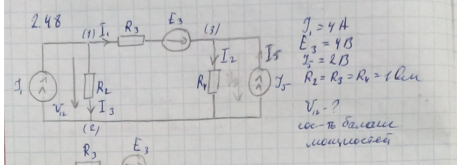 2.48
(1) I₁ R₃ E₃ (3)
I₂ I₅
J₁ R₂ R₄ J₅
V₁₂ I₃
(2)
R₃ E₃
J₁ = 4 А
E₃ = 4 В
J₅ = 2 В
R₂ = R₃ = R₄ = 1 Ом
V₁₂ - ?
сос-ть баланс
мощностей